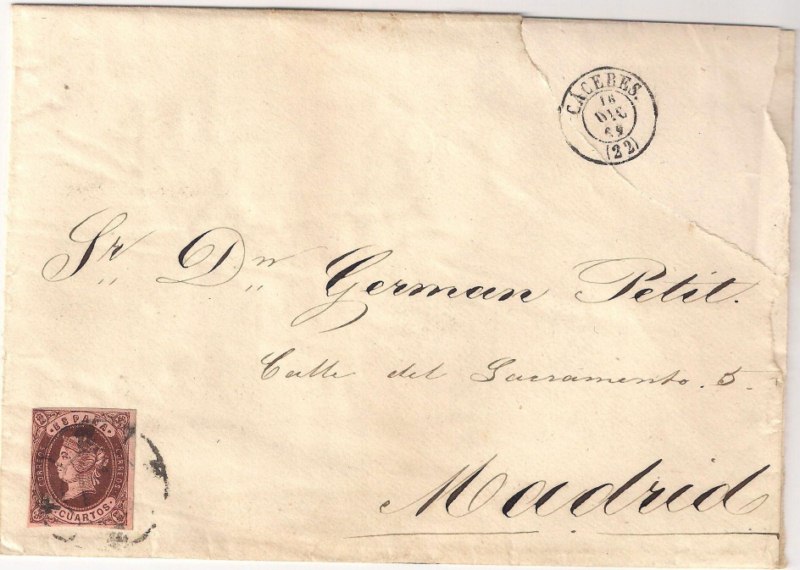 CACERES.
16
DIC
(22)
Sr. Dn. German Petit.
Calle del Sacramento. 5.
Madrid
ESPAÑA
CORREOS
CORREOS
CUARTOS